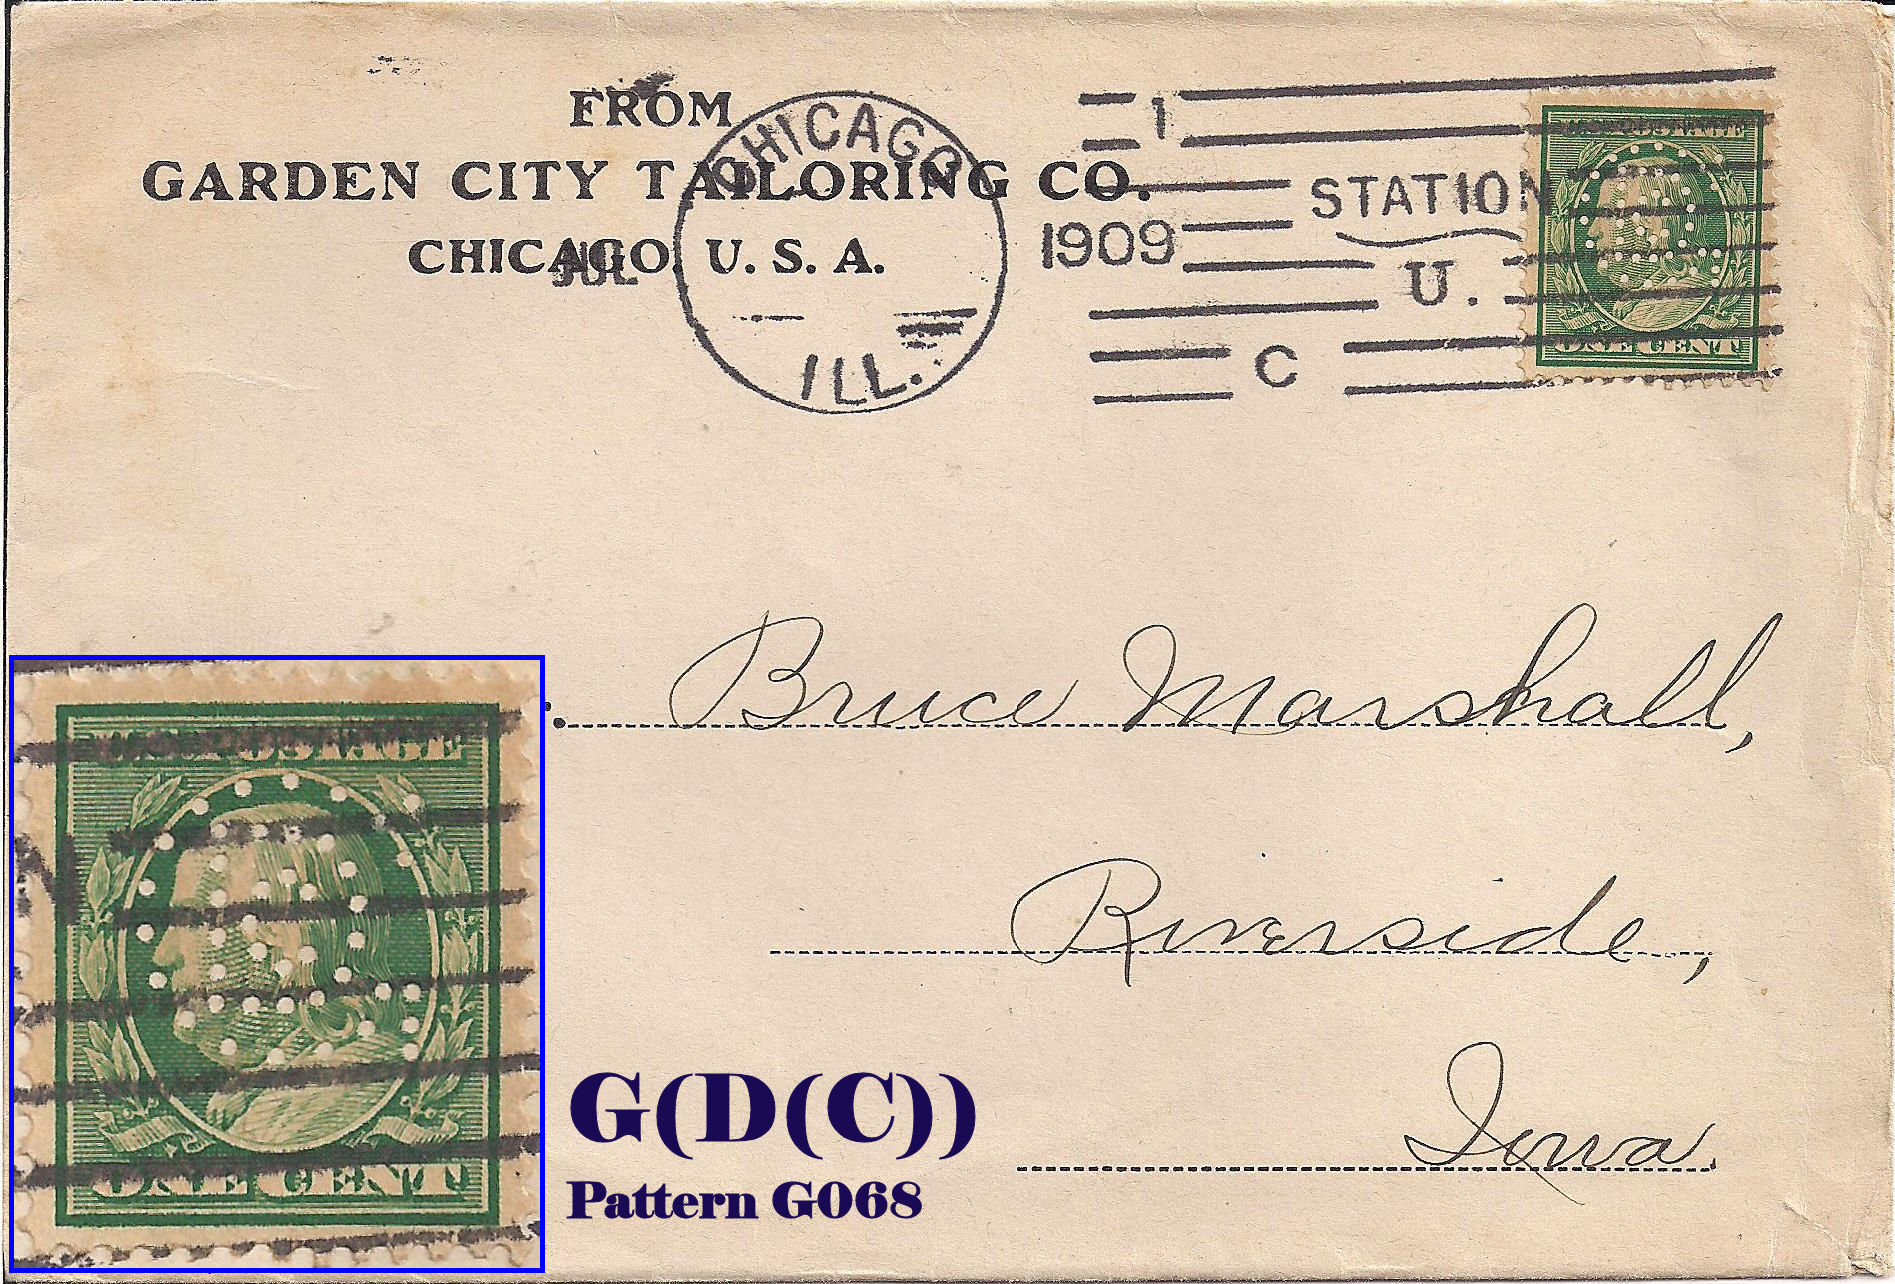 FROM
GARDEN CITY TAILORING CO.
CHICAGO, U. S. A.
CHICAGO
ILL.
JUL
1
1909
STATION
U.
C
ONE CENT
Bruce Marshall,
Riverside,
Iowa.
U.S. POSTAGE
ONE CENT
G(D(C))
Pattern G068